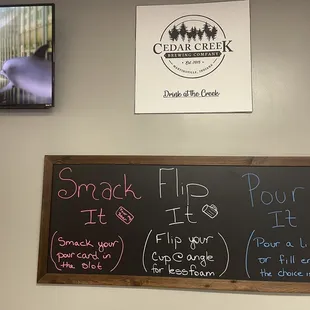 CEDAR CREEK
BREWING COMPANY
MARTINSVILLE, INDIANA
Drink at the Creek
Smack
It
(Smack your
pour card in
the slot)
Flip
It
(Flip your
Cup @ angle
for less foam)
Pour
It
(Pour a li
or fill
the choice i